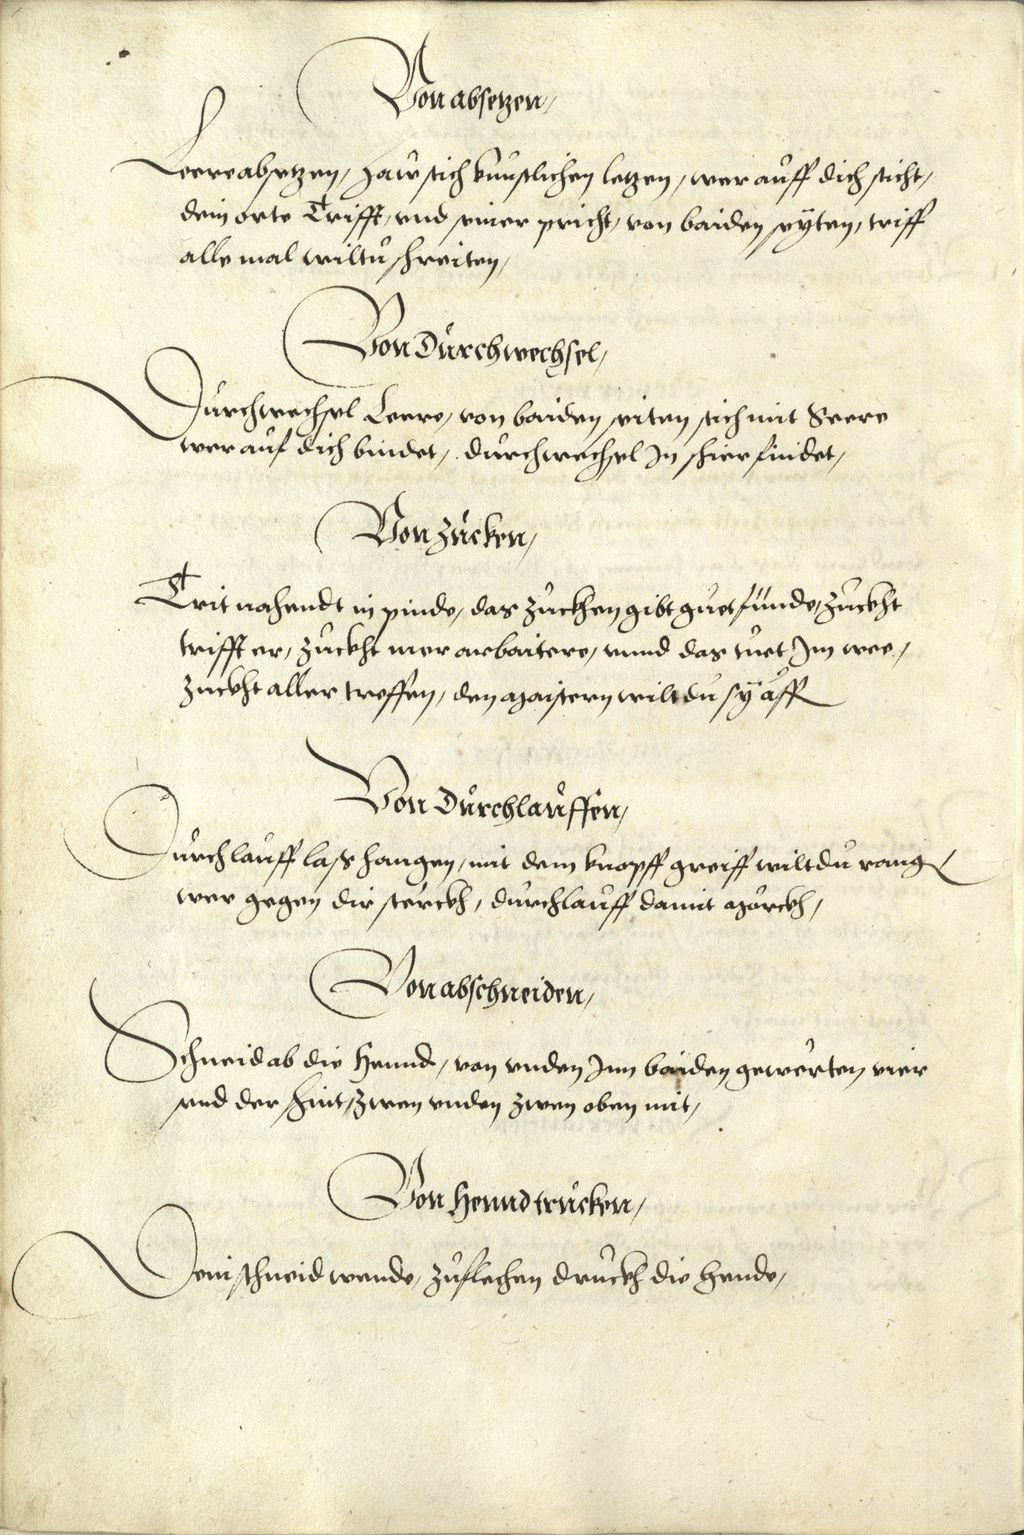 Von absetzen/
Leere absetzen/ haw stich kunstlichen letzen/ wer auff dich sticht/
dein orte Trifft/ vnd seiner pricht/ von baiden syten/ triff
alle mal wiltu schreiten/
Von Durchwechsel/
Durchwechsel Leere/ von baiden siten stich mit Seere
wer auf dich bindet/ durchwechsel In schier findet/
Von zucken/
Trit nahendt in pinde/ das zuckhen gibt guet fünde/ zuckht
trifft er/ zuckht mer arbaitere/ vnnd das tuet Im wee/
zuckht aller treffen/ den maistern wildu sy äff
Von Durchlauffen/
Durchlauff lass hangen/ mit dem knopff greiff wiltdu rang
wer gegen dir sterckh/ durchlauff damit mörckh/
Von abschneiden/
Schneid ab die Hennd/ von vnden Inn baiden gewerten vier
vnd der schnit/ zwen vnden zwen oben mit/
Von Henndtrucken/
Dein schneid wende/ zu flechen druckh die Hende/